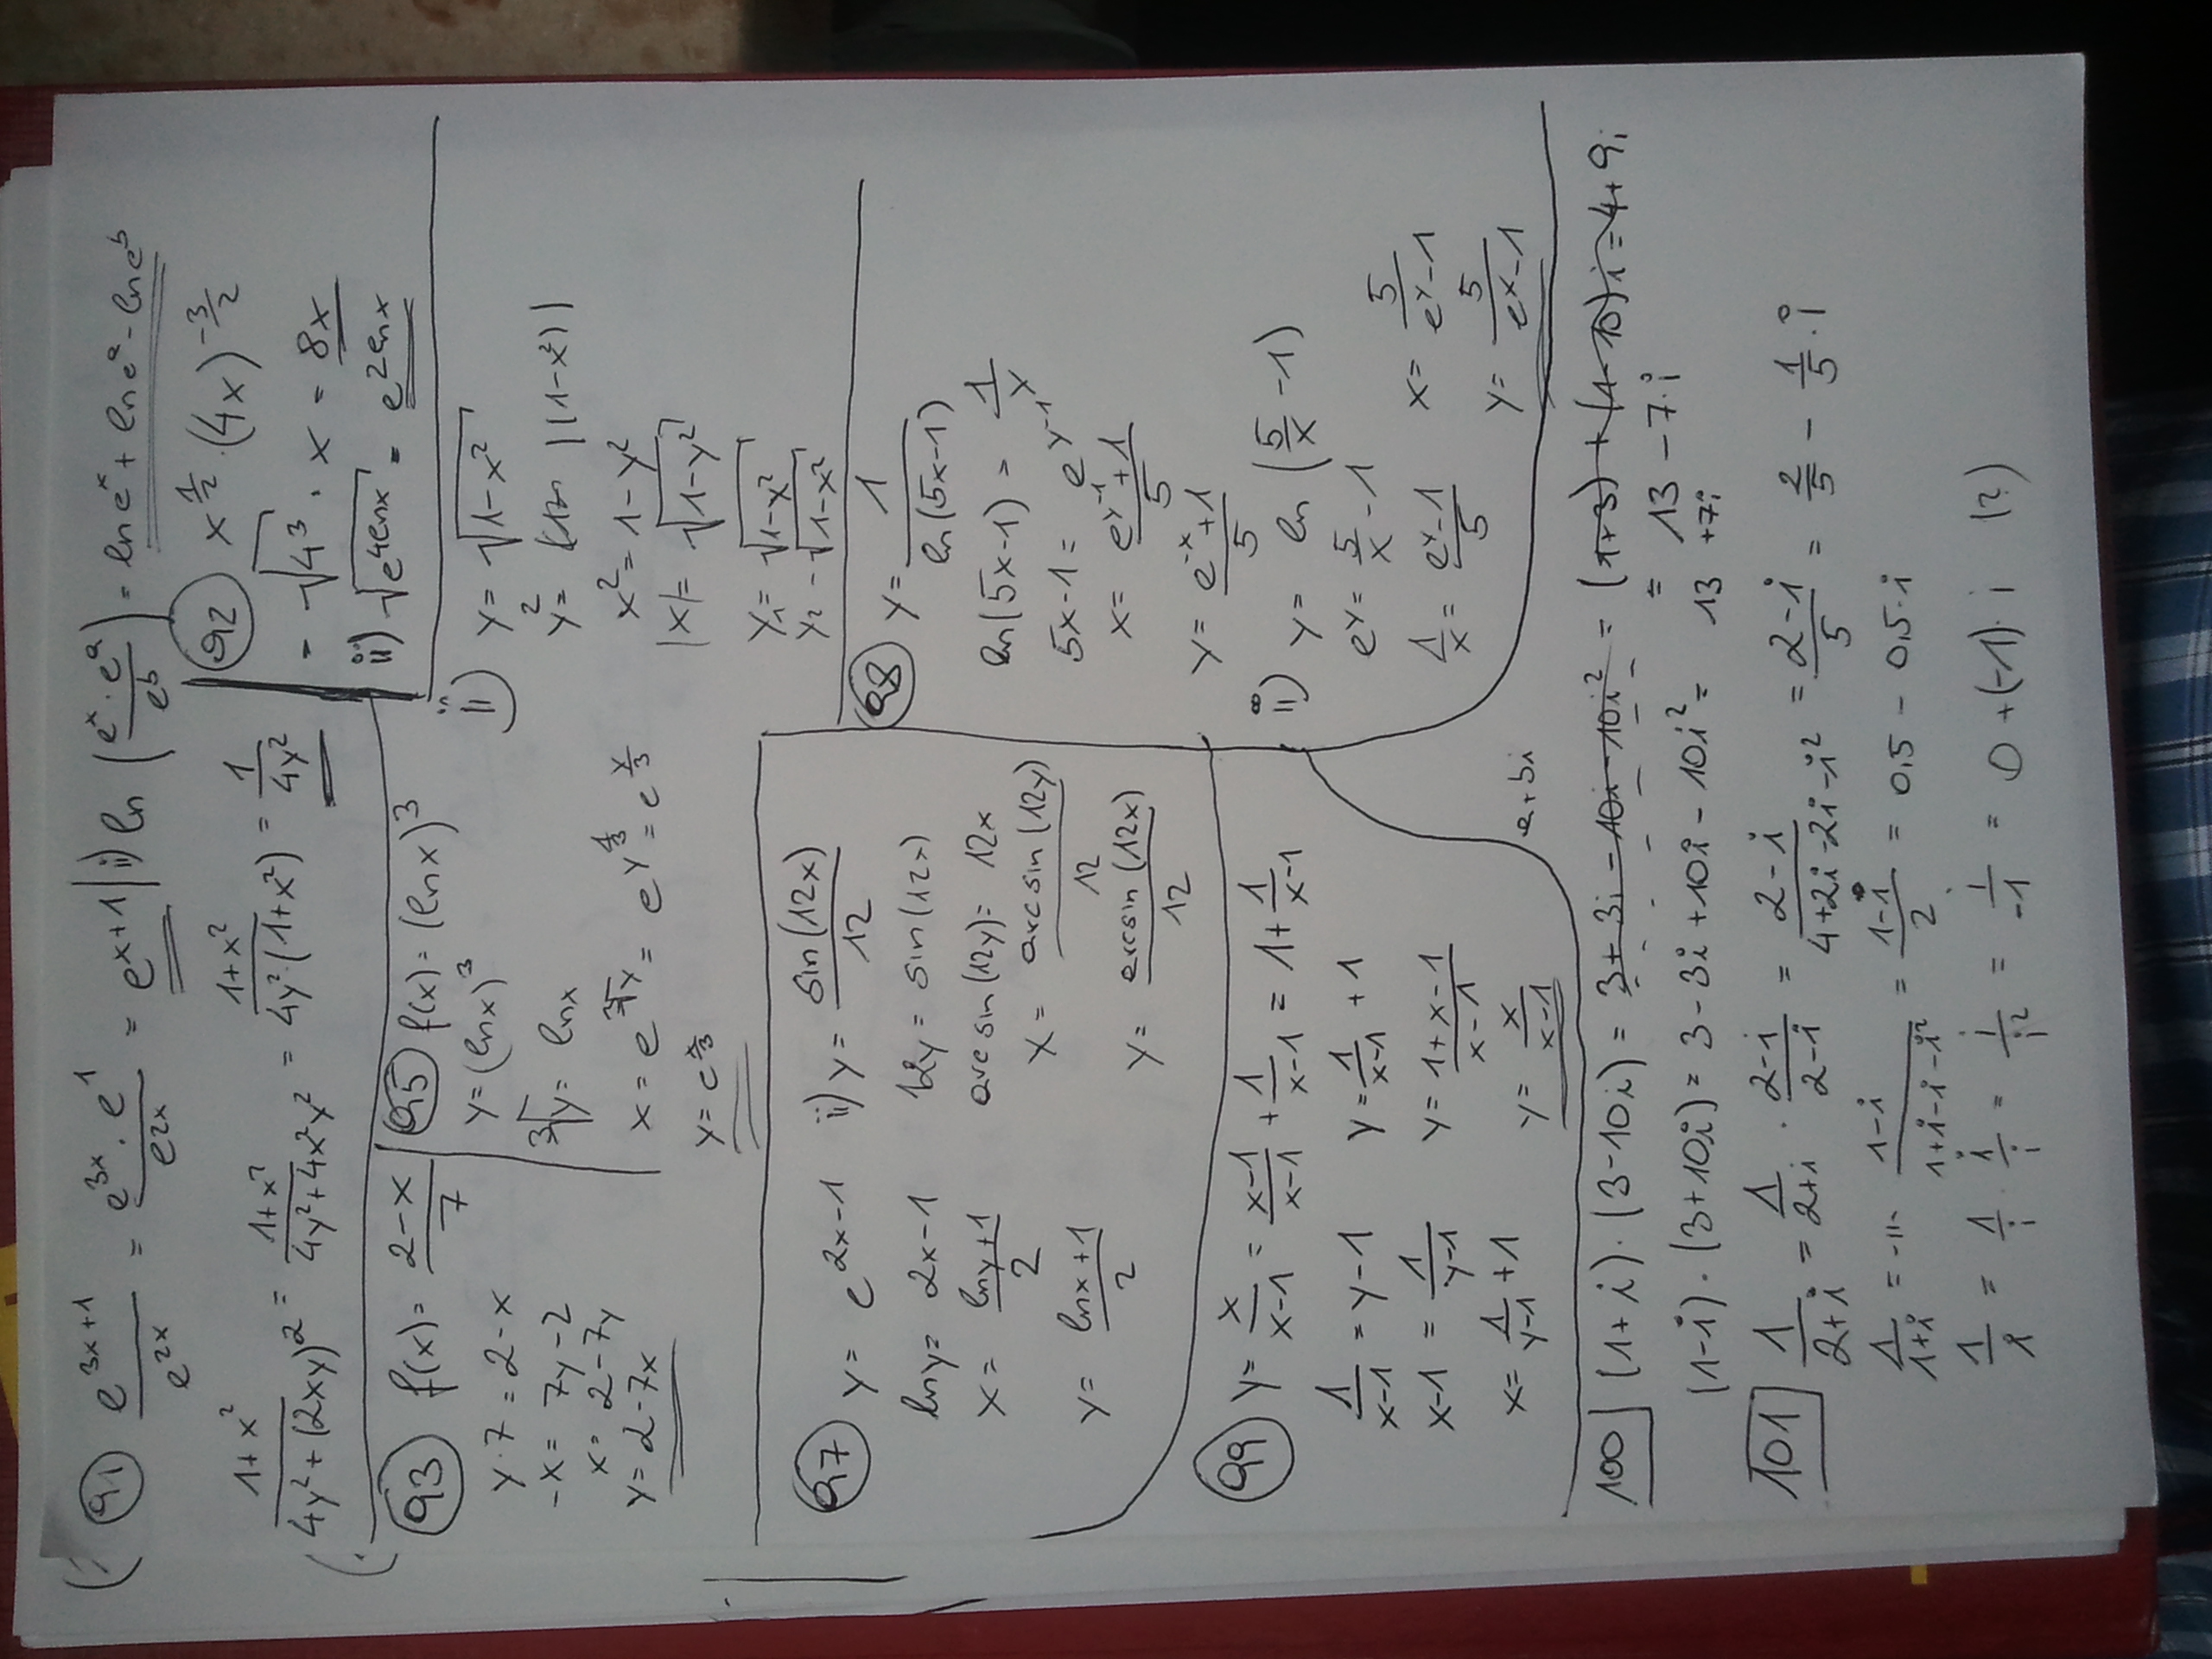 (i 91) e^{3x+1}/e^{2x} = e^{3x}·e^1/e^{2x} = e^{x+1} | ii) ln (e^x·e^a/e^b) = ln e^x + ln e^a - ln e^b
(1+x²)/(4y²+(2xy)²) = (1+x²)/(4y²+4x²y²) = (1+x²)/(4y²·(1+x²)) = 1/(4y²)
92) x^{1/2}·(4x)^{-3/2}
= √4³ · x = 8x
ii) √(e^{4lnx}) = e^{2lnx}
93) f(x) = (2-x)/7
y·7 = 2-x
-x = 7y-2
x = 2-7y
y = 2-7x
95) f(x) = (lnx)³
y = (lnx)³
³√y = lnx
x = e^{³√y} = e^{y^{1/3}} = e^{y/3}
y = e^{x/3}
ii) y = √(1-x²)
y² = |(1-x²)|
x² = 1-y²
|x| = √(1-y²)
y₁ = √(1-x²)
y₂ - √(1-x²)
97) y = e^{2x-1}
lny = 2x-1
x = (lny+1)/2
y = (lnx+1)/2
ii) y = sin(12x)/12
12y = sin(12x)
arcsin(12y) = 12x
x = arcsin(12y)/12
y = arcsin(12x)/12
98) y = 1/ln(5x-1)
ln(5x-1) = 1/y
5x-1 = e^{y^{-1}}
x = (e^{y^{-1}}+1)/5
y = (e^{-x}+1)/5
ii) y = ln (5/x -1)
e^y = 5/x -1
1/x = (e^y-1)/5
x = 5/(e^y-1)
y = 5/(e^x-1)
99) y = x/(x-1) = (x-1)/(x-1) + 1/(x-1) = 1 + 1/(x-1)
1/(x-1) = y-1
x-1 = 1/(y-1)
x = 1/(y-1) +1
y = 1/(x-1) +1
y = (1+x-1)/(x-1)
y = x/(x-1)
a+bi
100] (1+i)·(3-10i) = 3+3i-10i-10i² = (1+3)+(1-10)i = 4+9i
= 13 - 7·i
(1-i)·(3+10i) = 3-3i+10i-10i² = 13 +7i
101] 1/(2+i) = 1/(2+i) · (2-i)/(2-i) = (2-i)/(4+2i-2i-i²) = (2-i)/5 = 2/5 - 1/5·i
1/(1+i) = -"- (1-i)/(1+i-i-i²) = (1-i)/2 = 0.5 - 0.5·i
1/i = 1/i · i/i = i/i² = i/-1 = 0+(-1)·i (?)